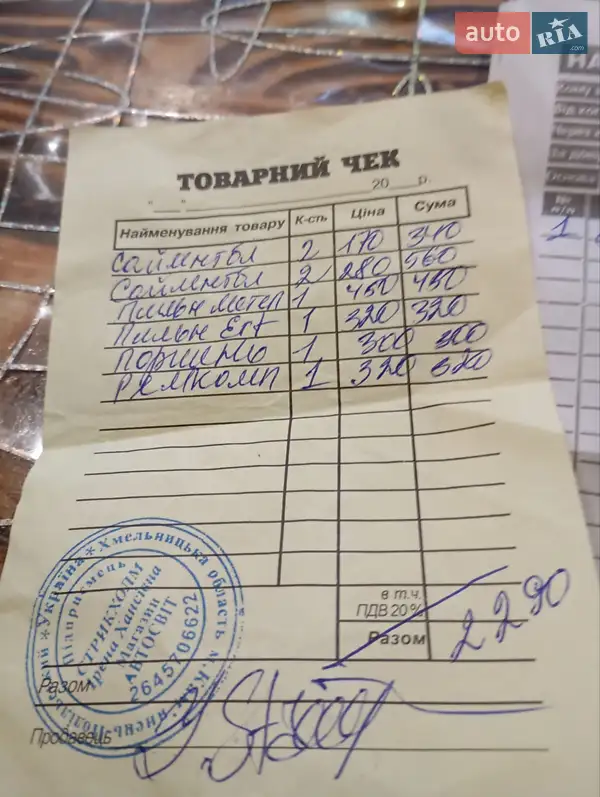 auto RIA .com
ТОВАРНИЙ ЧЕК
"___" 20___р.
Найменування товару К-сть Ціна Сума
Сайлентбл 2 170 340
Сайлентбл 2 280 560
Пильн Метел 1 450 450
Пильн Ert 1 320 320
Поршень 1 300 300
Ремкомп 1 320 320
в т.ч. ПДВ 20%
Разом 2290
Разом
Продавець
Україна * Хмельницька область м. Кам'янець-Подільський *
Підприємець
СТРИКХОЛМ
Ірена Хансівна
Магазин
АВТОСВІТ
2645706622
1